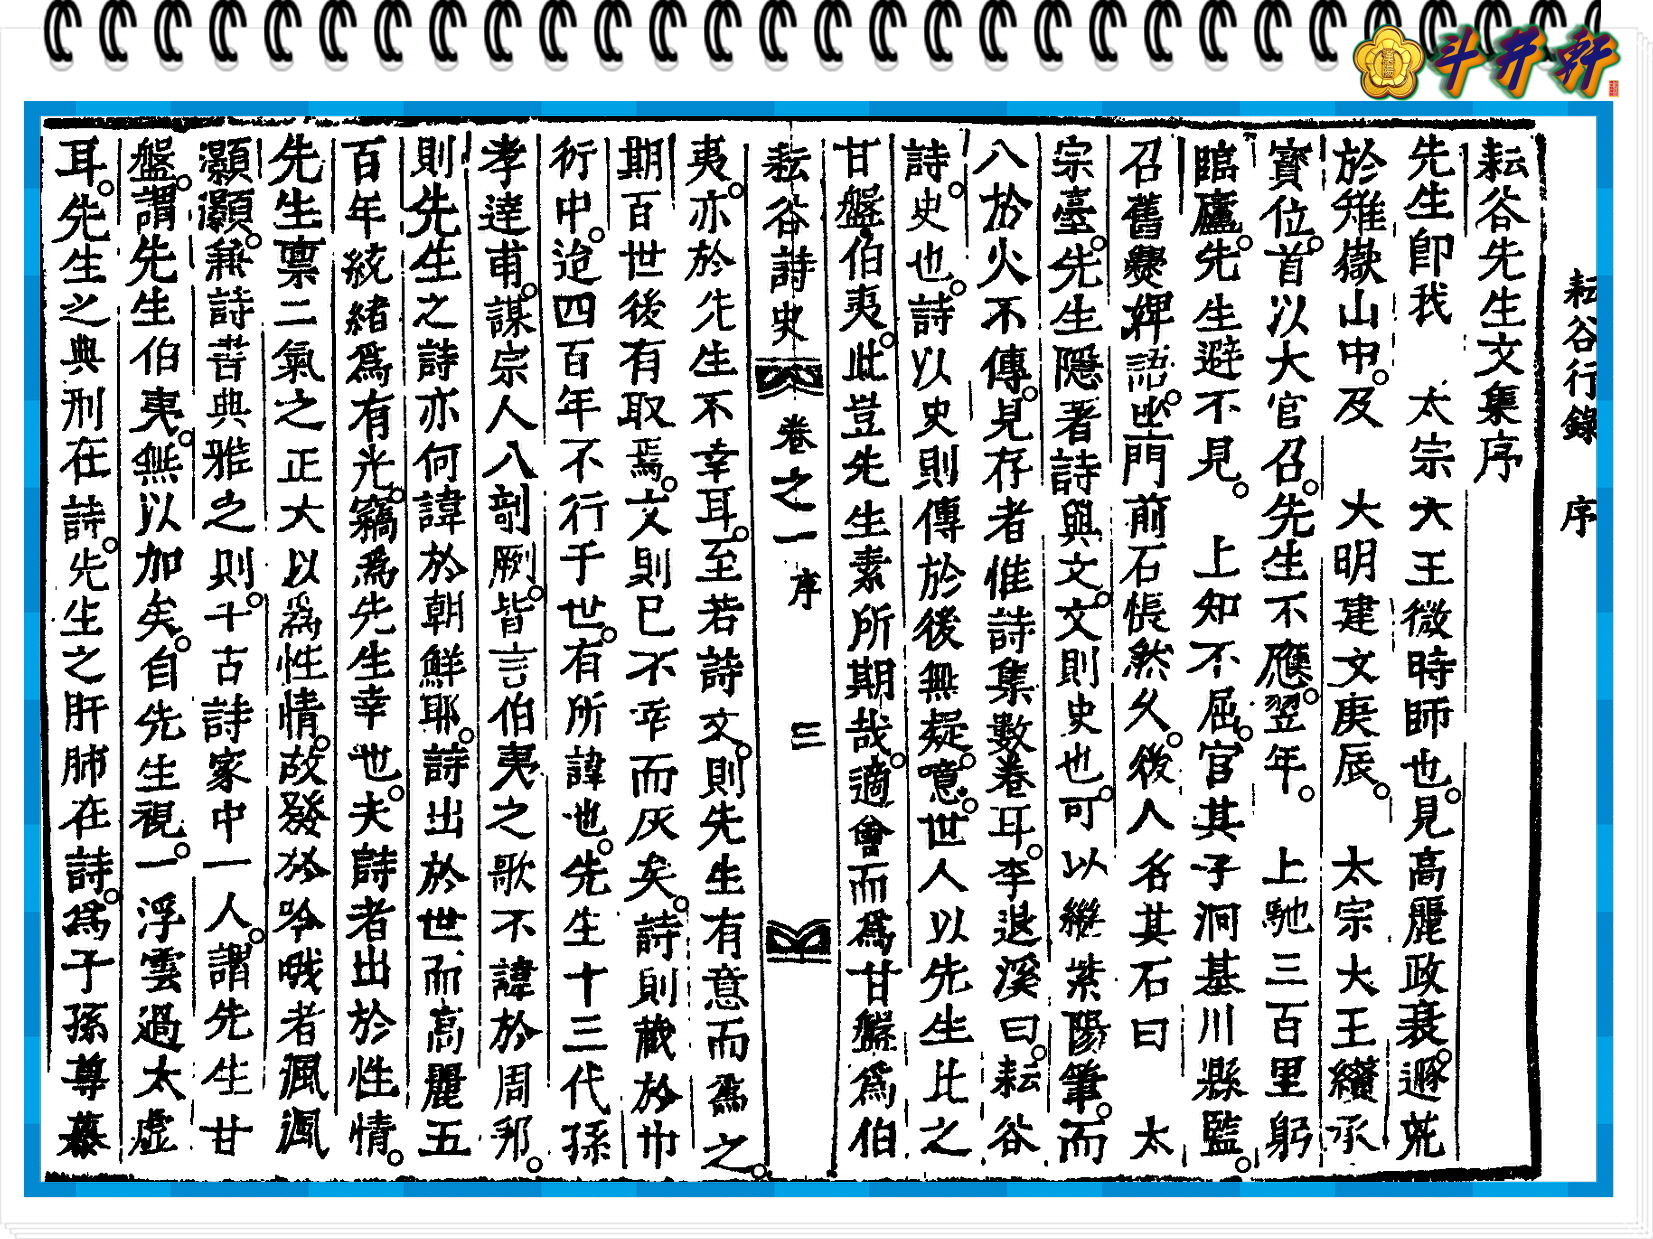 斗井軒
耘谷行錄 序
耘谷先生文集序
先生卽我 太宗大王微時師也見高麗政衰遯荒
於雉嶽山中及 大明建文庚辰 太宗大王纘承
寶位首以大官召先生不應翌年 上馳三百里躬
臨廬先生避不見 上知不屈官其子洞基川縣監
召舊㸑婢語坐門前石悵然久後人名其石曰 太
宗臺先生隱著詩與文文則史也可以繼紫陽筆而
八於火不傳見存者惟詩集數卷耳李退溪曰耘谷
詩史也詩以史則傳於後無疑噫世人以先生比之
甘盤伯夷此豈先生素所期哉適會而爲甘盤爲伯
耘谷詩史 卷之一 序 三
夷亦於先生不幸耳至若詩文則先生有意而爲之
期百世後有取焉文則已不幸而灰矣詩則藏於巾
衍中迨四百年不行于世有所諱也先生十三代孫
孝達甫謀宗人八剞劂皆言伯夷之歌不諱於周邦
則先生之詩亦何諱於朝鮮耶詩出於世而高麗五
百年統緖爲有光竊爲先生幸也夫詩者出於性情
先生禀二氣之正大以爲性情故發於吟哦者渢渢
灝灝兼詩書典雅之則千古詩家中一人謂先生甘
盤謂先生伯夷無以加矣自先生視一浮雲過太虛
耳先生之典刑在詩先生之肝肺在詩爲子孫尊慕